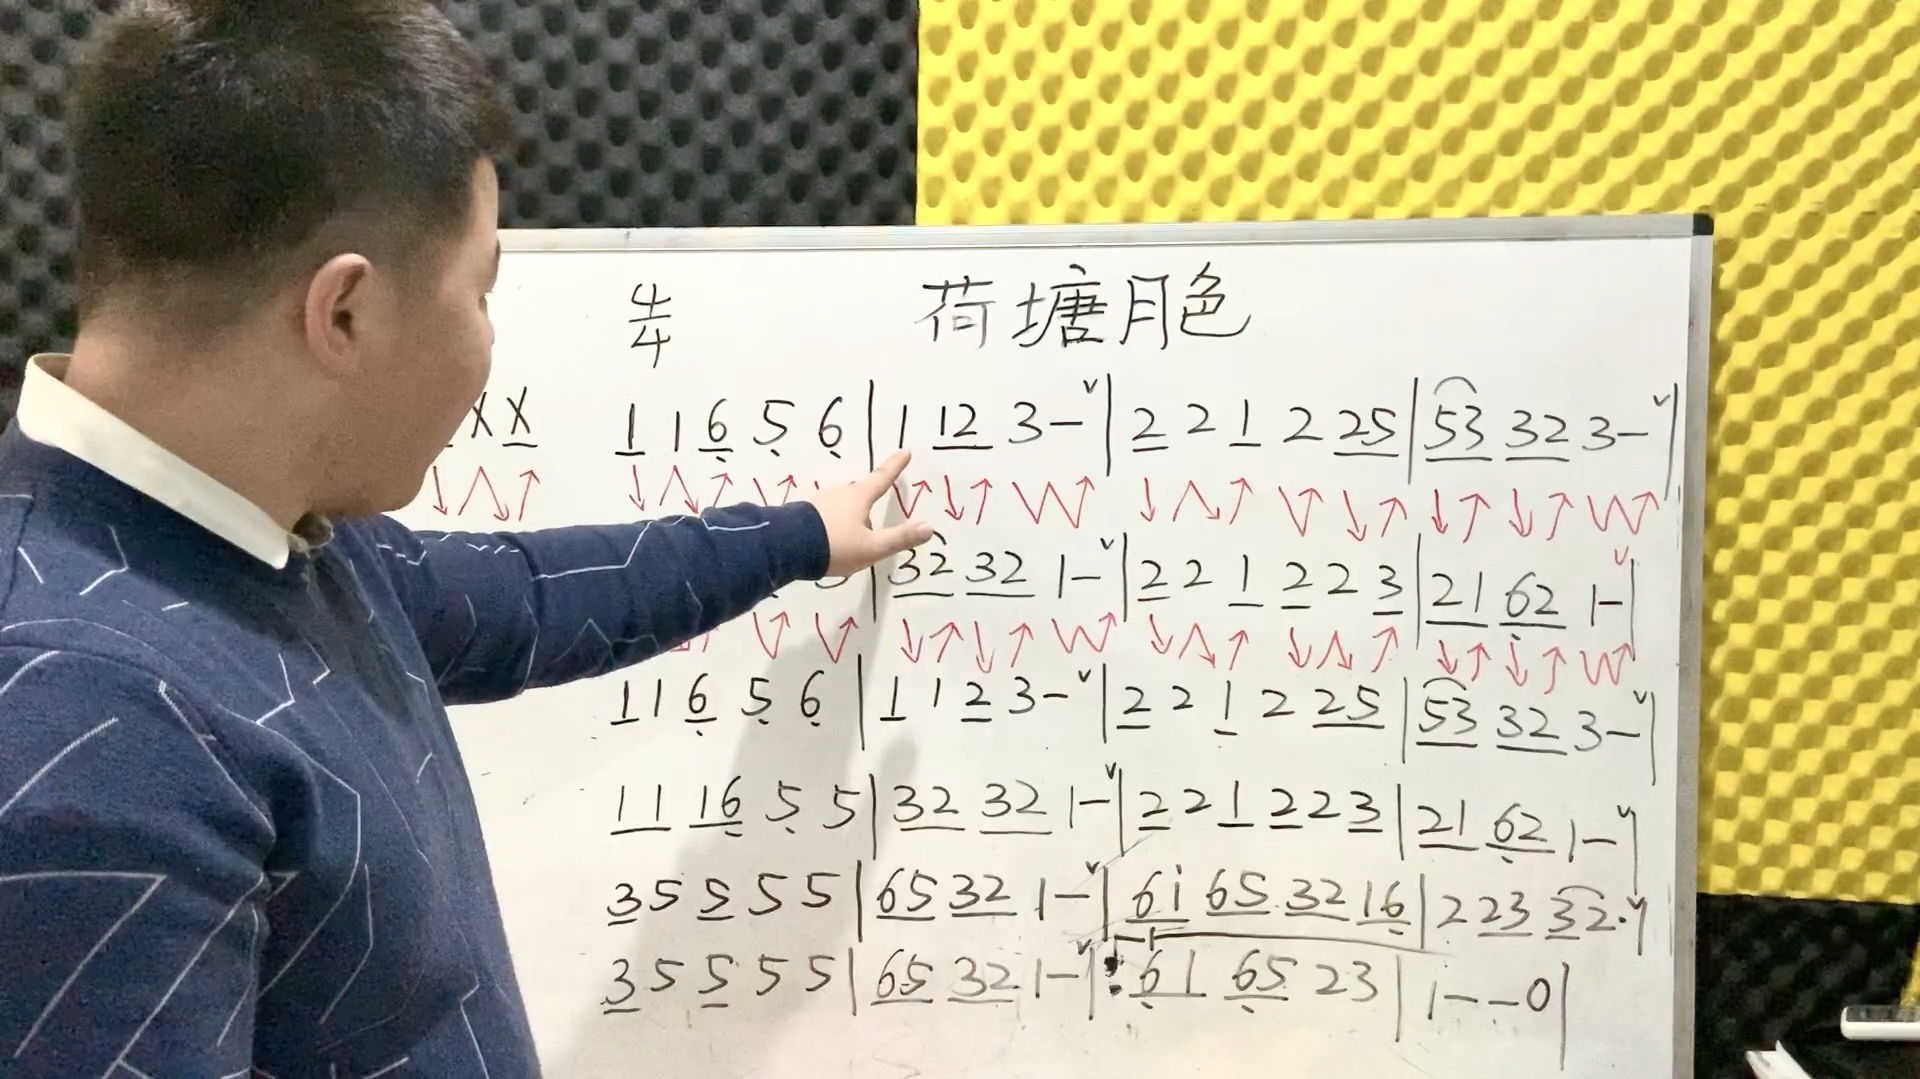 4/4 荷塘月色
X X 1 1 6 5 6 | 1 12 3 - ˅ | 2 2 1 2 25 | 53 32 3 - ˅ |
32 32 1 - ˅ | 2 2 1 2 2 3 | 21 62 1 - ˅ |
1 1 6 5 6 | 1 1 2 3 - ˅ | 2 2 1 2 25 | 53 32 3 - ˅ |
11 16 5 5 | 32 32 1 - ˅ | 2 2 1 2 2 3 | 21 62 1 - ˅ |
3 5 5 5 5 | 65 32 1 - ˅ | 6i 65 32 16 | 2 23 32· ˅ |
3 5 5 5 5 | 65 32 1 - ˅ | : 61 65 23 | 1 - - 0 |